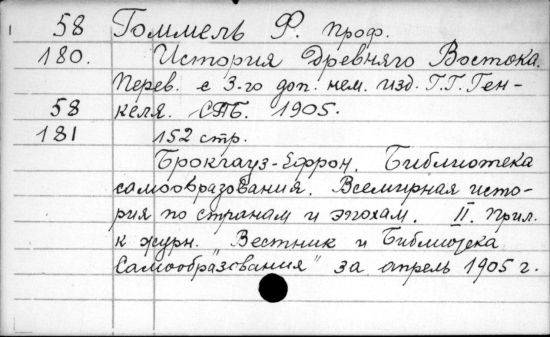 58 Гоммель Ф. проф.
180. История Древняго Востока.
Перев. с 3-го доп. нем. изд. Г.Г. Ген-
58 келя. СПБ. 1905.
181 152 стр.
Брокгауз-Ефрон. Библиотека
самообразования. Всемирная исто-
рия по странам и эпохам. II. Прил.
к журн. "Вестник и Библиотека
Самообразования" за апрель 1905 г.